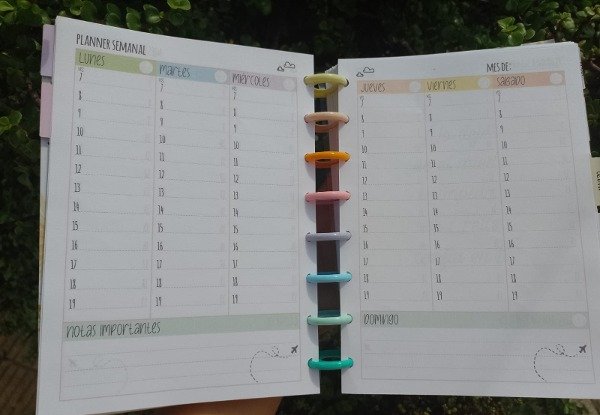 PLANNER SEMANAL
LUNES martes miercoles
7 7 7
8 8 8
9 9 9
10 10 10
11 11 11
12 12 12
13 13 13
14 14 14
15 15 15
16 16 16
17 17 17
18 18 18
19 19 19
notas importantes
MES DE:
Jueves viernes sabado
7 7 7
8 8 8
9 9 9
10 10 10
11 11 11
12 12 12
13 13 13
14 14 14
15 15 15
16 16 16
17 17 17
18 18 18
19 19 19
Domingo